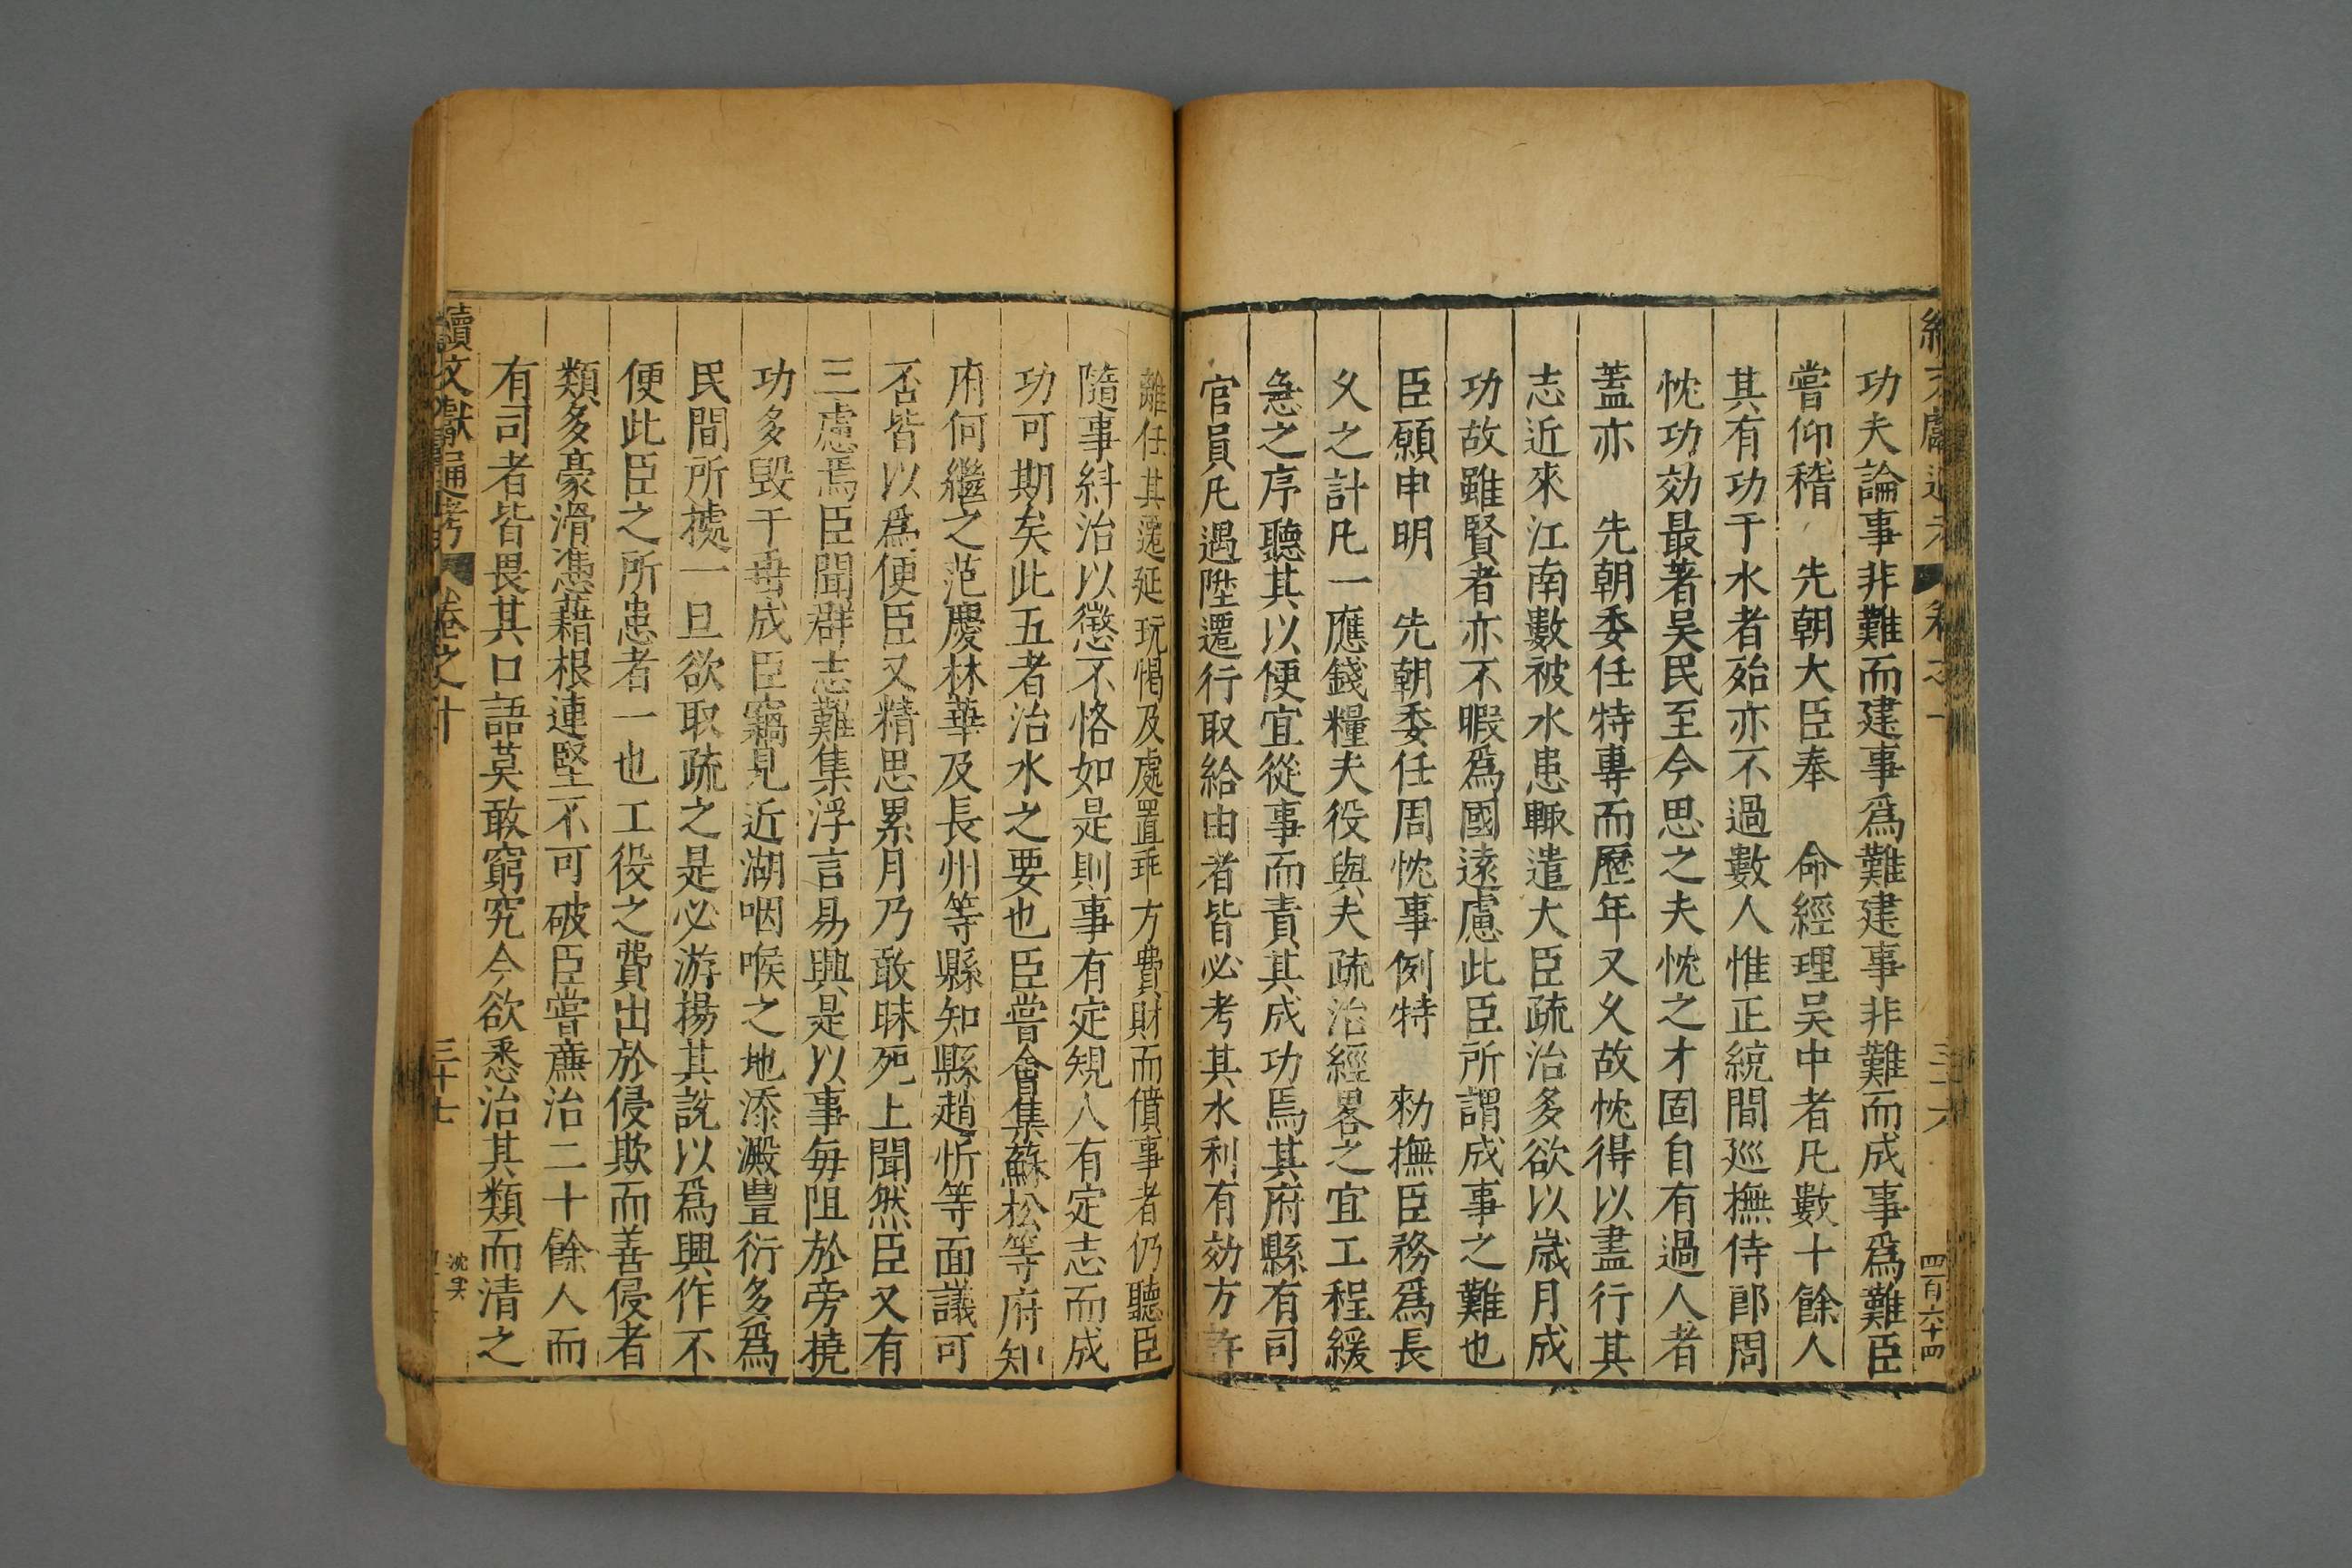 功夫論事非難而建事爲難建事非難而成事爲難臣
嘗仰稽 先朝大臣奉 命經理吳中者凡數十餘人
其有功于水者殆亦不過數人惟正統間廵撫侍郎周
忱功効最著吳民至今思之夫忱之才固自有過人者
蓋亦 先朝委任特專而歷年又久故忱得以盡行其
志近來江南數被水患輙遣大臣疏治多欲以歲月成
功故雖賢者亦不暇爲國遠慮此臣所謂成事之難也
臣願申明 先朝委任周忱事例特 勑撫臣務爲長
久之計凡一應錢糧夫役與夫疏治經畧之宜工程緩
急之序聽其以便宜從事而責其成功焉其府縣有司
官員凡遇陞遷行取給由者皆必考其水利有効方許
離任其遷延玩愒及處置乖方費財而僨事者仍聽臣
隨事糾治以懲不恪如是則事有定規人有定志而成
功可期矣此五者治水之要也臣嘗會集蘇松等府知
府何繼之范慶林華及長州等縣知縣趙忻等面議可
否皆以爲便臣又精思累月乃敢昧死上聞然臣又有
三慮焉臣聞群志難集浮言易興是以事每阻於旁撓
功多毀于垂成臣竊見近湖咽喉之地添澱豐衍多爲
民間所據一旦欲取疏之是必游揚其說以爲興作不
便此臣之所患者一也工役之費出於侵欺而善侵者
類多豪滑憑藉根連堅不可破臣嘗廉治二十餘人而
有司者皆畏其口語莫敢窮究今欲悉治其類而清之
續文獻通考 卷之十 三十七